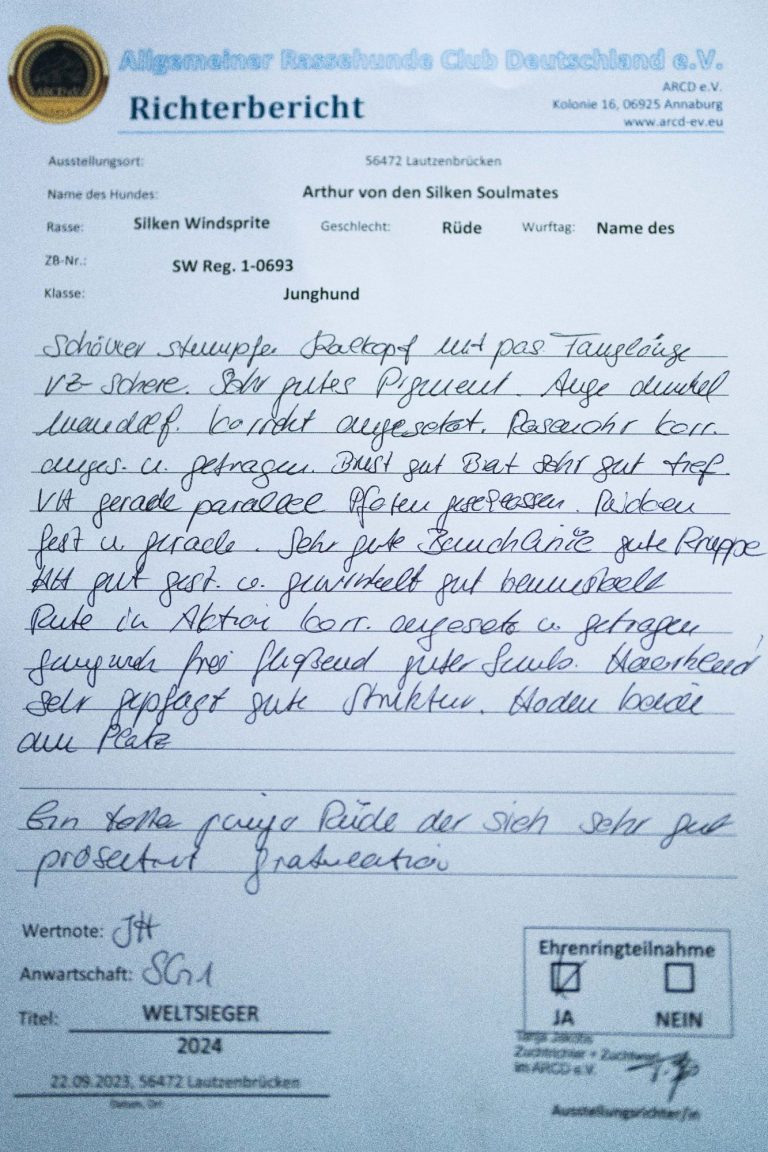 Allgemeiner Rassehunde Club Deutschland e.V.
ARCD e.V.
Richterbericht
Kolonie 16, 06925 Annaburg
www.arcd-ev.eu
Ausstellungsort: 56472 Lautzenbrücken
Name des Hundes: Arthur von den Silken Soulmates
Rasse: Silken Windsprite Geschlecht: Rüde Wurftag: Name des
ZB-Nr.: SW Reg. 1-0693
Klasse: Junghund
Schöner stumpfer mit pas. Fanglänge
VZ Schere. Sehr gutes Pigment. Auge dunkel
mandelf. korrekt angesetzt. Rosenohr korr.
anges. u. getragen. Brust gut Brust sehr gut tief.
VH gerade parallel Pfoten geschlossen. Rücken
fest u gerade. Sehr gute Bauchlinie gute Kruppe
HH gut gest. u. gewinkelt gut bemuskelt
Rute in Aktion korr. angesetzt u. getragen
Gangwerk frei fließend guter Schub. Haarkleid
sehr gepflegt gute Struktur. Hoden beide
am Platz
Ein toller junger Rüde der sich sehr gut
präsentiert Gratulation
Wertnote: JH
Anwartschaft: SG1
Titel: WELTSIEGER
2024
22.09.2023, 56472 Lautzenbrücken
Datum, Ort
Ehrenringteilnahme
JA NEIN
Tanja Jakobs
Zuchtrichter + Zuchtwart
im ARCD e.V.
Ausstellungsrichter/in